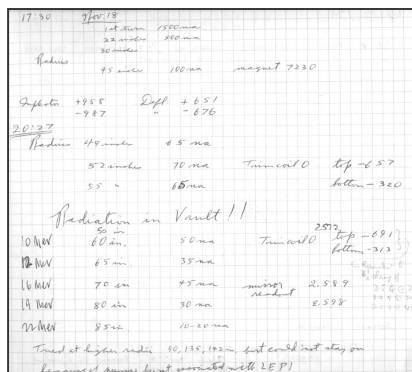 17:30 9 Nov. 18
1st turn 1500 na
22 inches 900 na
30 inches
Radius
45 inches 100 na magnet 7230
Inflector +958 Defl + 651
-987 " - 676
20:27
Radius 48 inches 65 na
52 inches 70 na Trim coil 0 top -657
55 " 65 na bottom - 320
Radiation in Vault!!
50 in 2572
10 MeV 60 in. 50 na Trim coil 0 top -691
bottom -313
12 MeV 65 in 35 na
16 MeV 70 in 45 na mirror readout 2.589
19 MeV 80 in 30 na 2.598
22 MeV 85 in. 10-20 na
Tried at higher radii 90, 135, 142 in. but could not stay on
because of power limit associated with LEP1